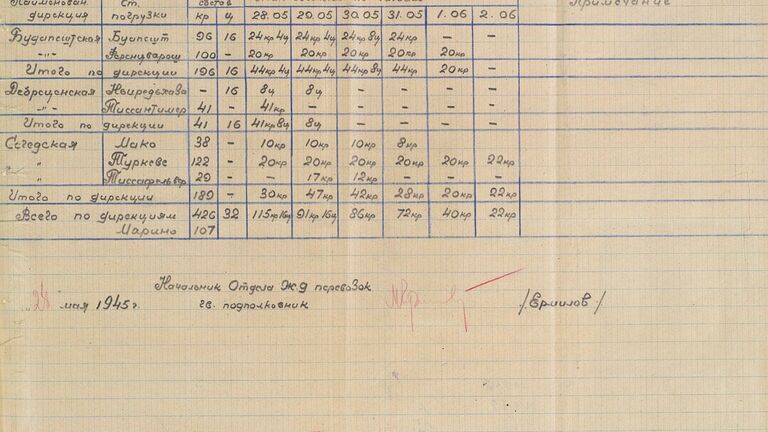 дирекция погрузки кр ц 28.05 29.05 30.05 31.05 1.06 2.06 Примечание
Будапештская Буапешт 96 16 24кр 4ц 24кр 4ц 24кр 8ц 24кр — —
100 — 20кр 20кр 20кр 20кр 20кр
Итого по дирекции 196 16 44кр 4ц 44кр 4ц 44кр 8ц 44кр 20кр —
Дебреценская — 16 8ц 8ц — — — —
-"- Тиссантимер 41 — 41кр — — — — —
Итого по дирекции 41 16 41кр 8ц 8ц — — — —
Сегедская Мако 38 — 10кр 10кр 10кр 8кр — —
" Туркеве 122 — 20кр 20кр 20кр 20кр 20кр 22кр
" 29 — — 17кр 12кр — — —
Итого по дирекции 189 — 30кр 47кр 42кр 28кр 20кр 22кр
Всего по дирекциям 426 32 115кр 16ц 91кр 16ц 86кр 72кр 40кр 22кр
Марино 107
Начальник Отдела ЖД перевозок
"28" мая 1945г. гв. подполковник /Ермилов/